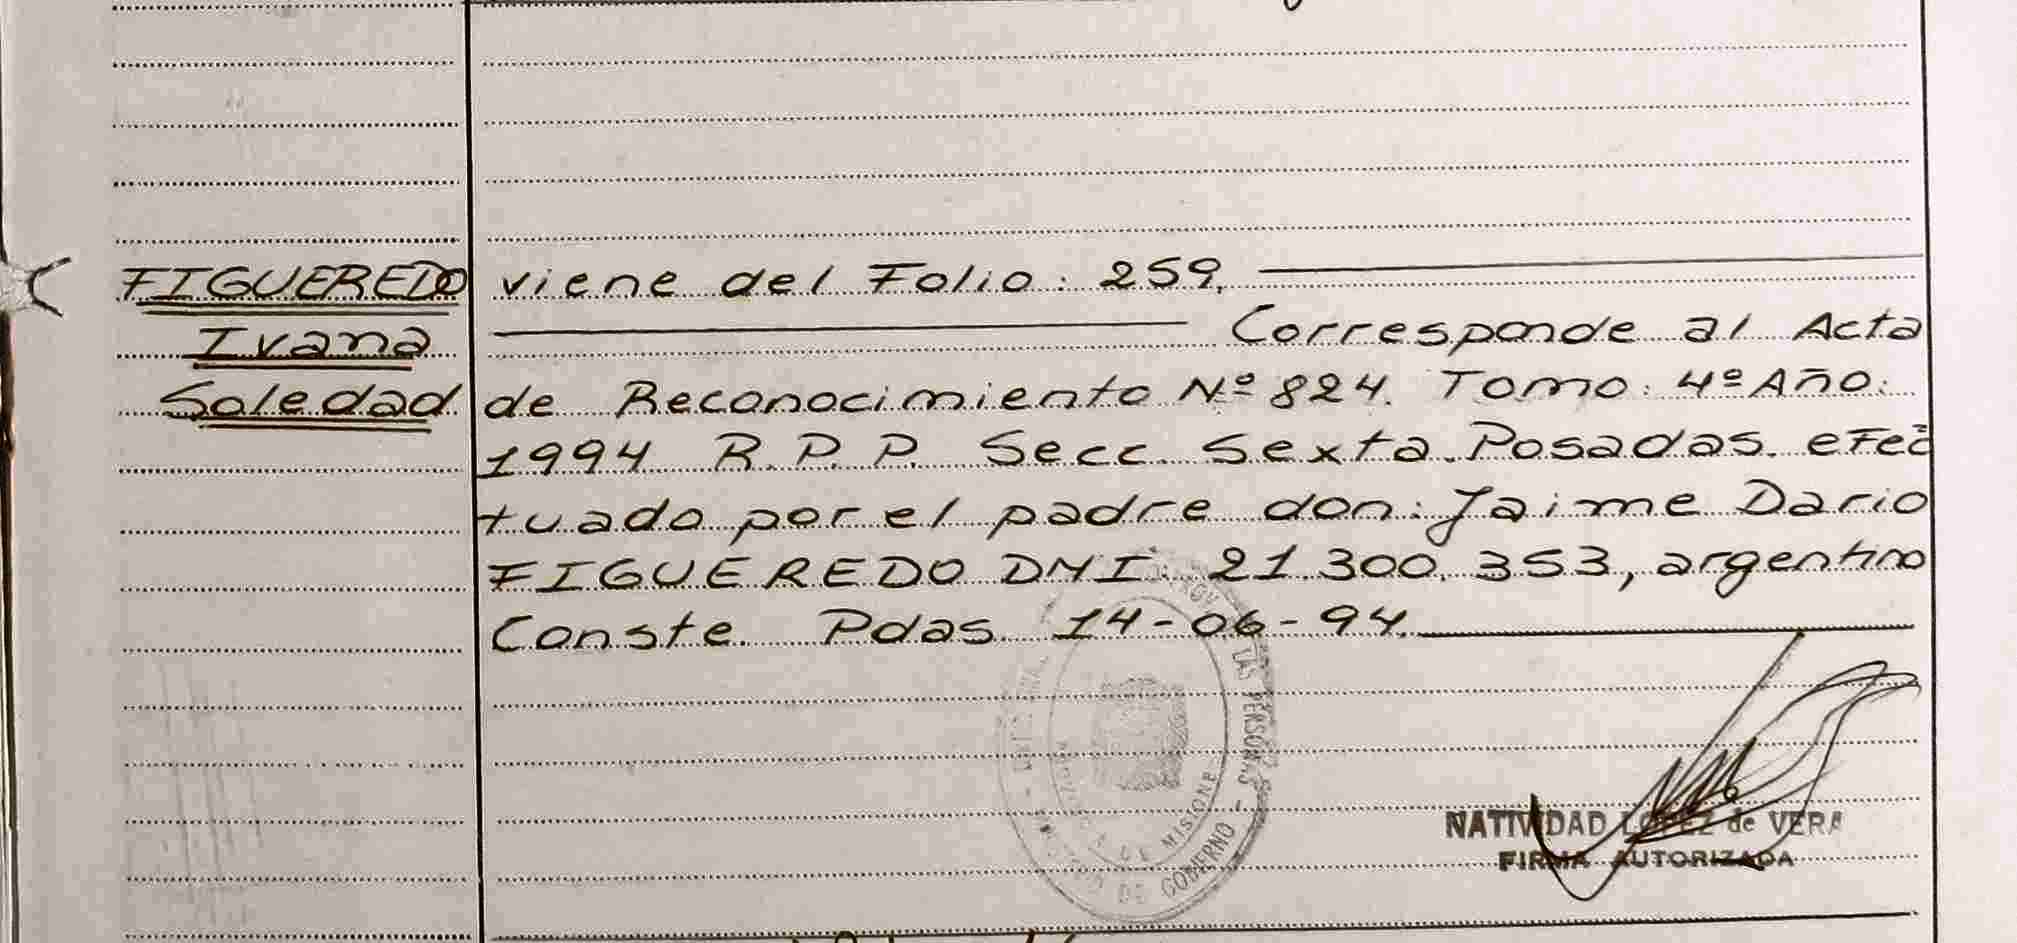 FIGUEREDO
Ivana
Soledad
viene del Folio: 259.
Corresponde al Acta
de Reconocimiento Nº 824. Tomo: 4º Año:
1994 R.P.P. Secc. Sexta. Posadas. efec
tuado por el padre don: Jaime Dario
FIGUEREDO DNI: 21.300.353, argentino
Conste. Pdas. 14-06-94.
LAS PERSONAS -
DE MISIONE
DE GOBERNO -
NATIVIDAD LOPEZ de VERA
FIRMA AUTORIZADA